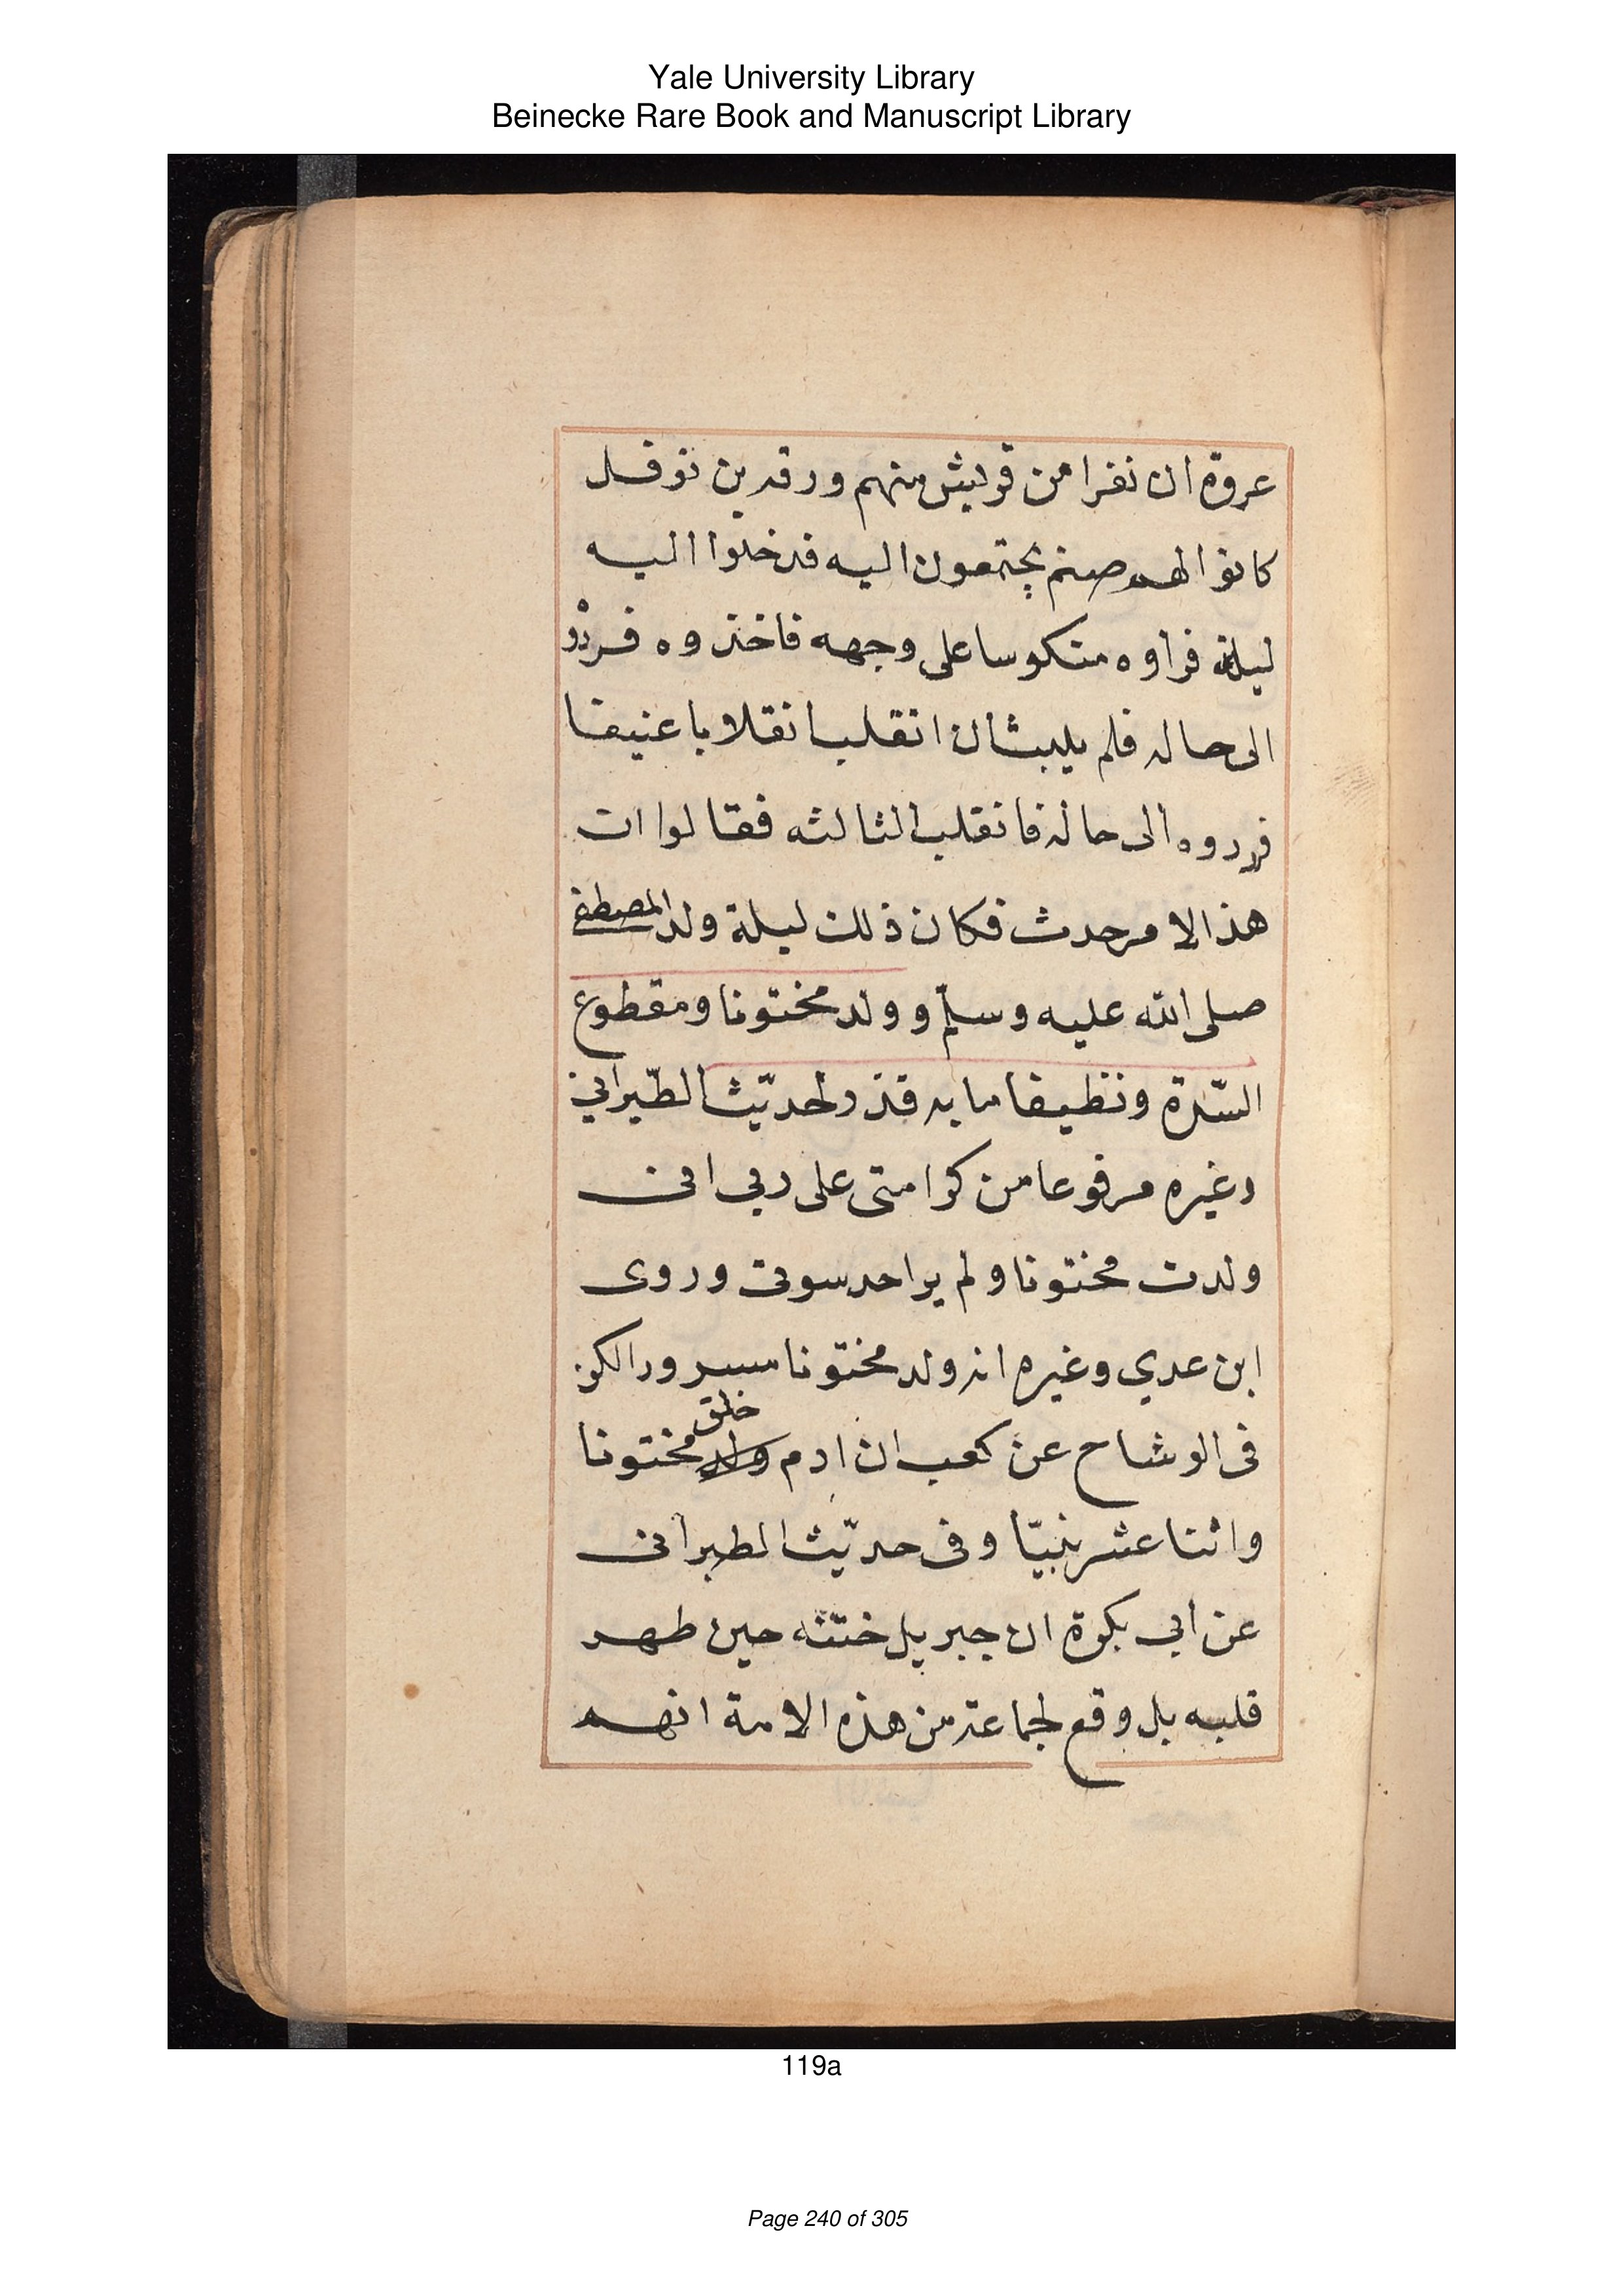 Yale University Library
Beinecke Rare Book and Manuscript Library
عروة ان نفرا من قريش منهم ورقه بن نوفل
كانوا الهم صنم يجتمعون اليه فدخلوا اليه
ليلة فراوه متكوسا على وجهه فاخذوه فردو
الى حاله فلم يلبث ان انقلب انقلابا عنيفا
فردوه الى حاله فانقلب الثالثه فقالوا ان
هذا الامر حدث فكان ذلك ليلة ولد المصطفى
صلى الله عليه وسلم و ولد مختونا ومقطوع
السّرة ونظيفا ما به قذر لحديث الطبراني
وغيره مرفوعا من كرامتى على ربي انى
ولدت مختونا ولم ير احد سوتى وروى
ابن عدي وغيره انه ولد مختونا مسرورا لكن
فى الوشاح عن كعب ان ادم خلق مختونا
واثنا عشر نبيّا وفى حديث الطبرانى
عن ابي بكرة ان جبريل ختنه حين طهر
قلبه بل وقع لجماعة من هذه الامة انهم
119a
Page 240 of 305